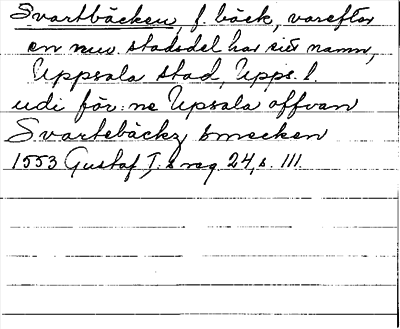 Svartbäcken f. bäck, varefter
en nuv. stadsdel har sitt namn,
Uppsala stad, Upps. l.
udi för:ne Upsala offvan
Svartebäckz bmecken
1553 Gustaf I:s reg. 24, s. 111.